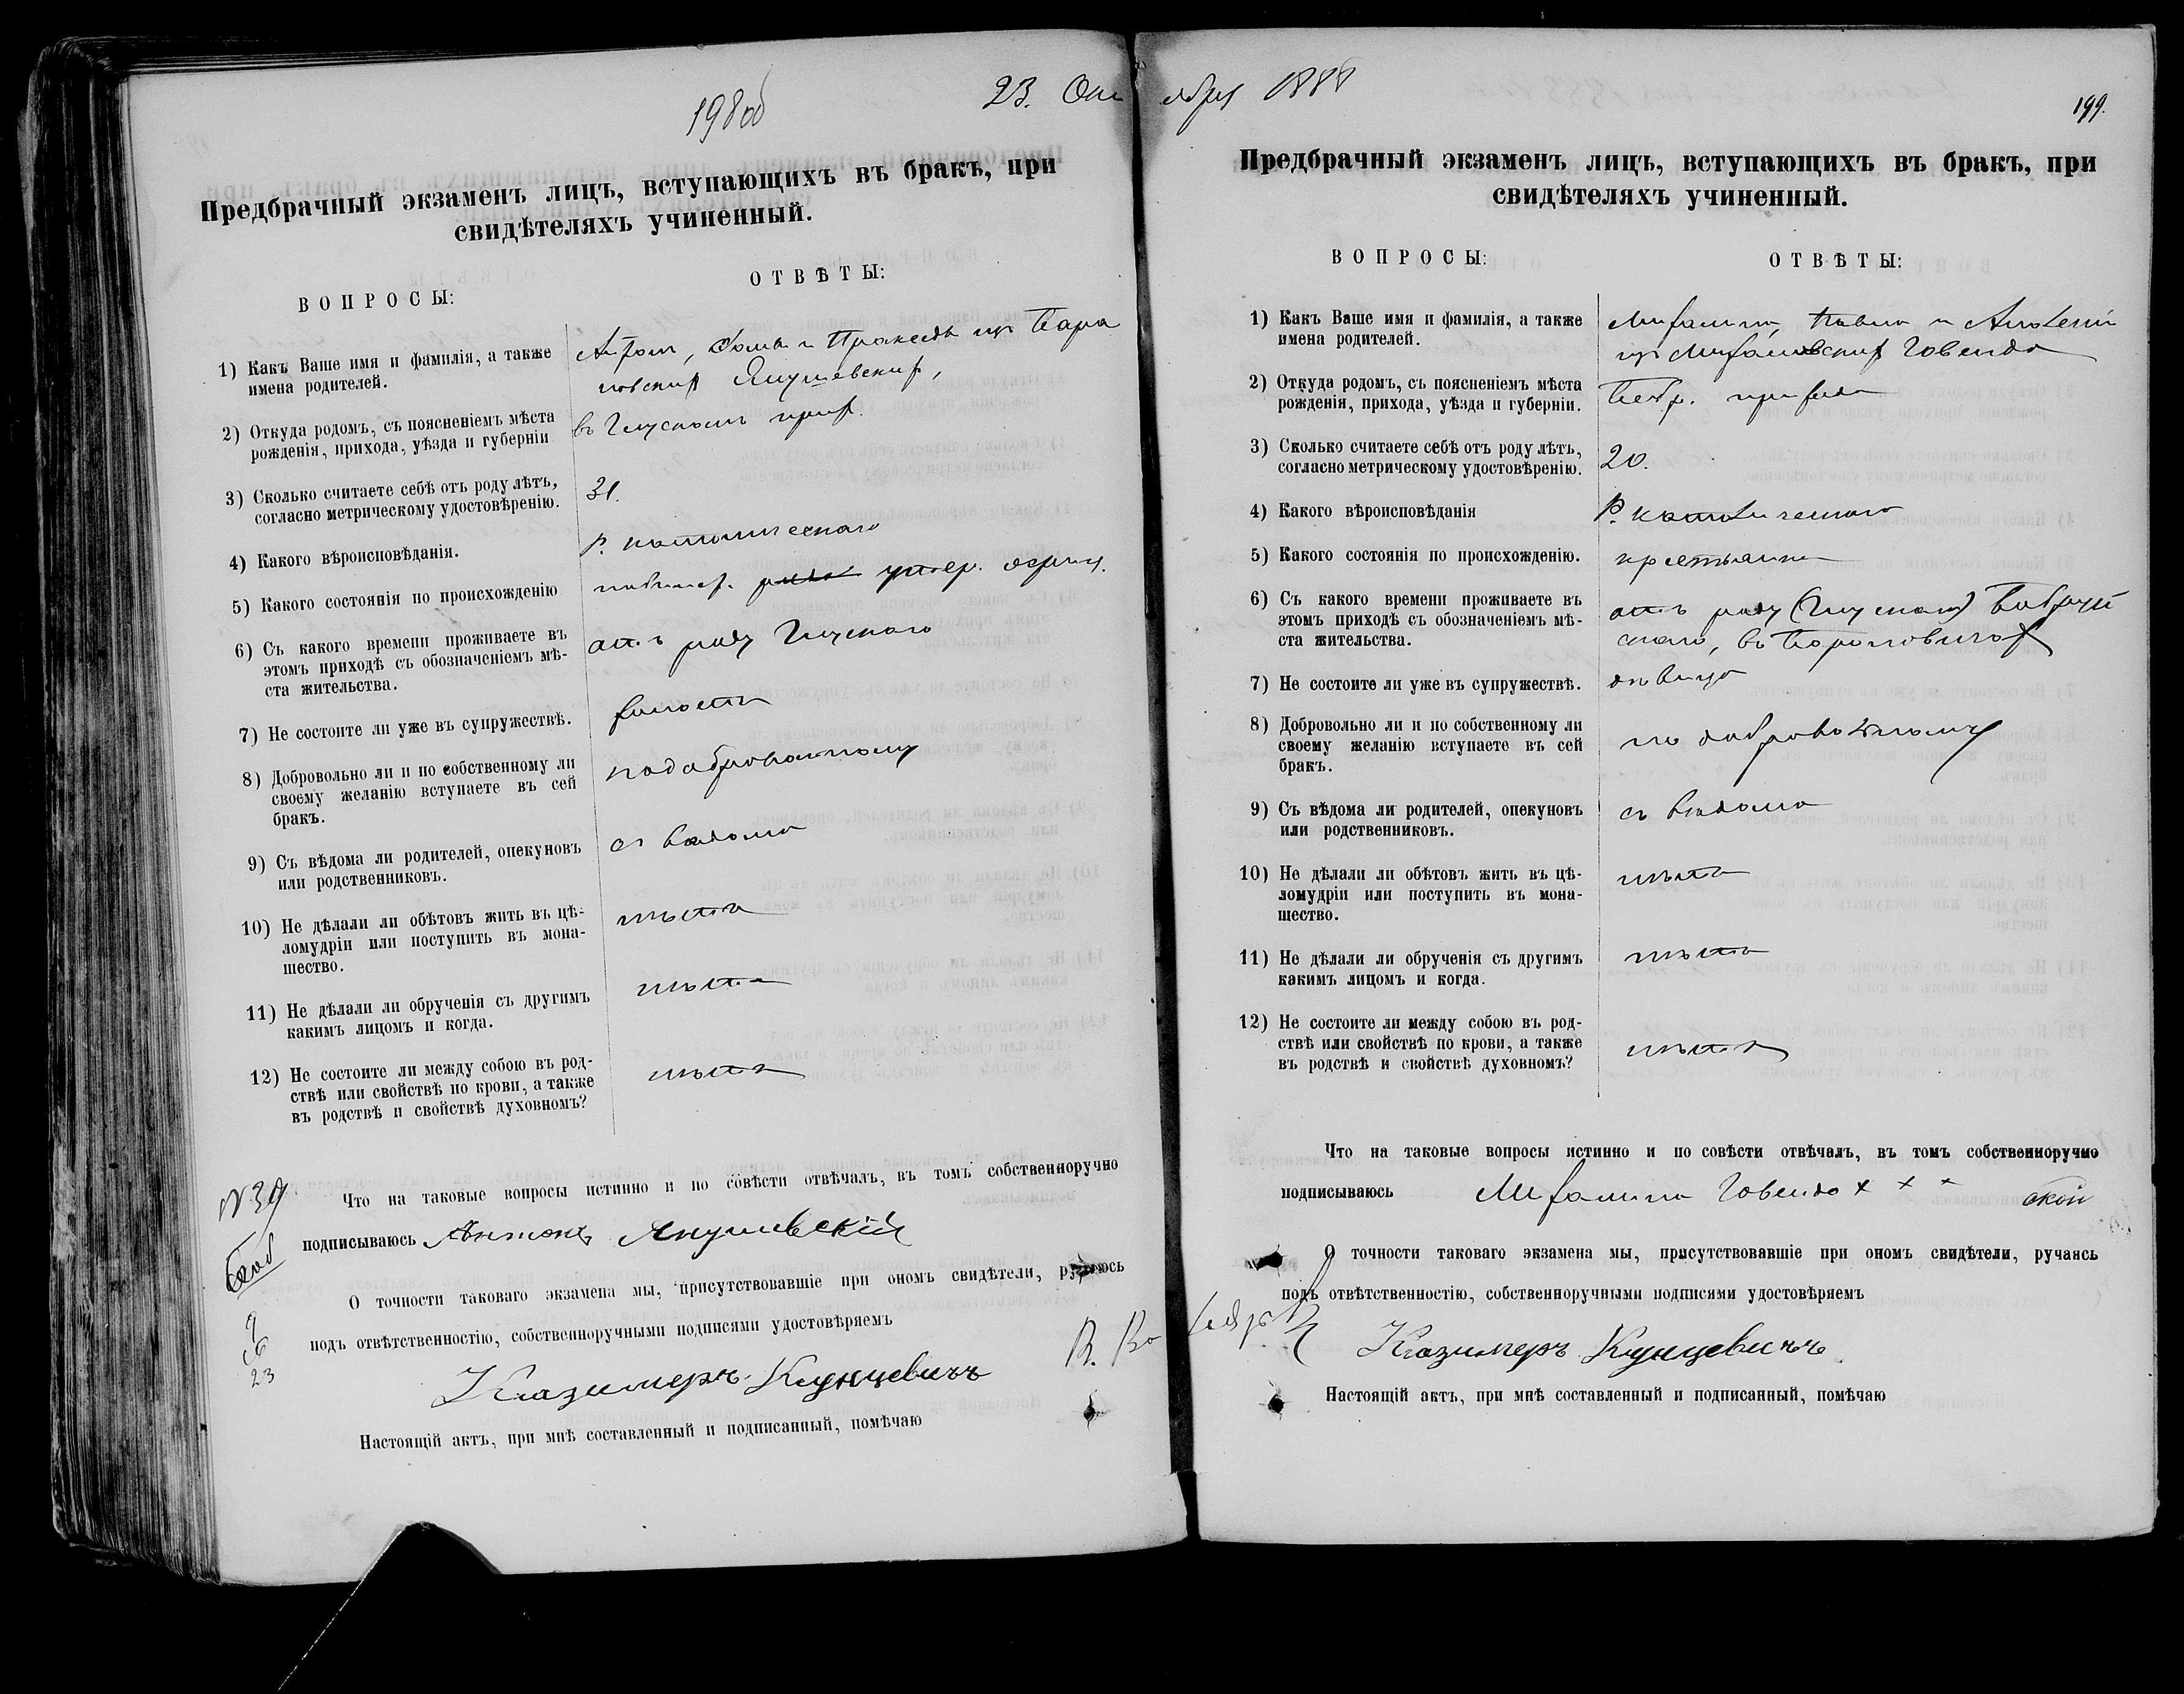 198об
23. Октября 1888
Предбрачный экзаменъ лицъ, вступающихъ въ бракъ, при
свидѣтеляхъ учиненный.
ВОПРОСЫ:
ОТВѢТЫ:
1) Какъ Ваше имя и фамилія, а также
имена родителей.
2) Откуда родомъ, съ поясненіемъ мѣста
рожденія, прихода, уѣзда и губерніи
въ Глускомъ прих.
3) Сколько считаете себѣ отъ роду лѣтъ,
согласно метрическому удостовѣренію.
31.
4) Какого вѣроисповѣданія.
Р. католическаго
5) Какого состоянія по происхожденію
6) Съ какого времени проживаете въ
этомъ приходѣ съ обозначеніемъ мѣ-
ста жительства.
отъ роду Глускаго
7) Не состоите ли уже въ супружествѣ.
холостъ
8) Добровольно ли и по собственному ли
своему желанію вступаете въ сей
бракъ.
по добровольному
9) Съ вѣдома ли родителей, опекуновъ
или родственниковъ.
съ вѣдома
10) Не дѣлали ли обѣтовъ жить въ цѣ-
ломудріи или поступить въ мона-
шество.
нѣтъ
11) Не дѣлали ли обрученія съ другимъ
какимъ лицомъ и когда.
нѣтъ
12) Не состоите ли между собою въ род-
ствѣ или свойствѣ по крови, а также
въ родствѣ и свойствѣ духовномъ?
нѣтъ
N 39
Что на таковые вопросы истинно и по совѣсти отвѣчалъ, въ томъ собственноручно
подписываюсь Антонъ Янушевскій
О точности таковаго экзамена мы, присутствовавшіе при ономъ свидѣтели, ручаюсь
подъ отвѣтственностію, собственноручными подписями удостовѣряемъ
9
16
23
Казимеръ Кунцевичъ
Настоящій актъ, при мнѣ составленный и подписанный, помѣчаю
199.
Предбрачный экзаменъ лицъ, вступающихъ въ бракъ, при
свидѣтеляхъ учиненный.
ВОПРОСЫ:
ОТВѢТЫ:
1) Какъ Ваше имя и фамилія, а также
имена родителей.
Михалина, Павла и
изъ Михаловскихъ Говендо
2) Откуда родомъ, съ поясненіемъ мѣста
рожденія, прихода, уѣзда и губерніи.
прихода
3) Сколько считаете себѣ отъ роду лѣтъ,
согласно метрическому удостовѣренію.
20.
4) Какого вѣроисповѣданія
Р. католическаго
5) Какого состоянія по происхожденію.
крестьянка
6) Съ какого времени проживаете въ
этомъ приходѣ съ обозначеніемъ мѣ-
ста жительства.
отъ роду (Глускаго) Бобруй
скаго, въ
7) Не состоите ли уже въ супружествѣ.
дѣвица
8) Добровольно ли и по собственному ли
своему желанію вступаете въ сей
бракъ.
по добровольному
9) Съ вѣдома ли родителей, опекуновъ
или родственниковъ.
съ вѣдома
10) Не дѣлали ли обѣтовъ жить въ цѣ-
ломудріи или поступить въ мона-
шество.
нѣтъ
11) Не дѣлали ли обрученія съ другимъ
какимъ лицомъ и когда.
нѣтъ
12) Не состоите ли между собою въ род-
ствѣ или свойствѣ по крови, а также
въ родствѣ и свойствѣ духовномъ?
нѣтъ
Что на таковые вопросы истинно и по совѣсти отвѣчалъ, въ томъ собственноручно
подписываюсь Михалина Говендо × × ×
О точности таковаго экзамена мы, присутствовавшіе при ономъ свидѣтели, ручаясь
подъ отвѣтственностію, собственноручными подписями удостовѣряемъ
Казимеръ Кунцевичъ
Настоящій актъ, при мнѣ составленный и подписанный, помѣчаю